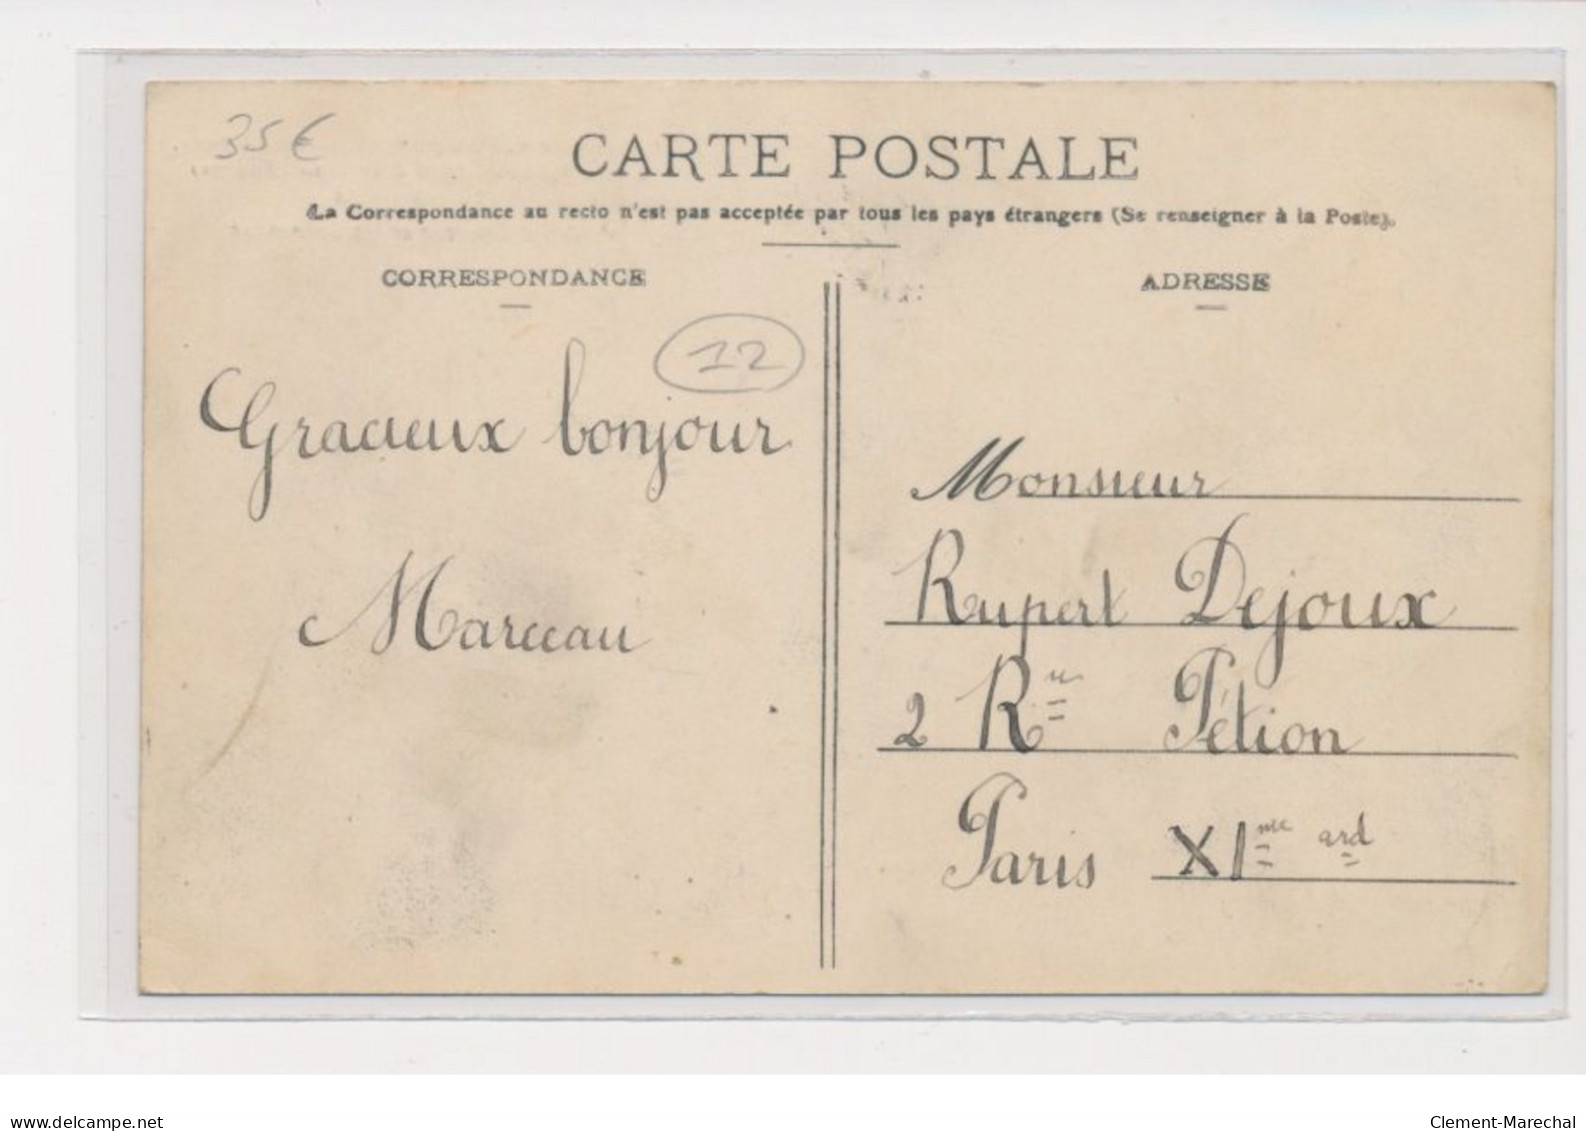 35 €
CARTE POSTALE
(La Correspondance au recto n'est pas acceptée par tous les pays étrangers (Se renseigner à la Poste).
CORRESPONDANCE
ADRESSE
12
Gracieux bonjour
Marceau
Monsieur
Rupert Dejoux
2 Rue Pétion
Paris XIme ard
www.delcampe.net
Clement-Marechal